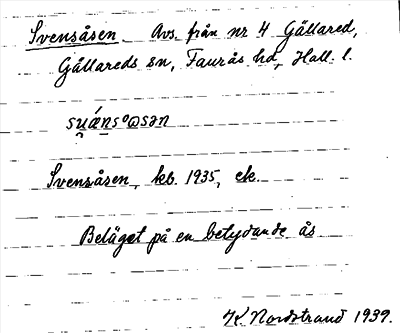 Svensåsen Avs. från nr 4 Gällared,
Gällareds sn, Faurås hd, Hall. l.
Svensåsen, kb. 1935, ek.
Beläget på en betydande ås
K Nordstrand 1939.